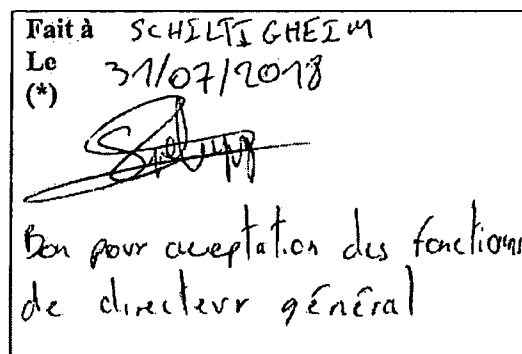 Fait à SCHILTIGHEIM
Le 31/07/2018
(*)
Bon pour acceptation des fonctions
de directeur général